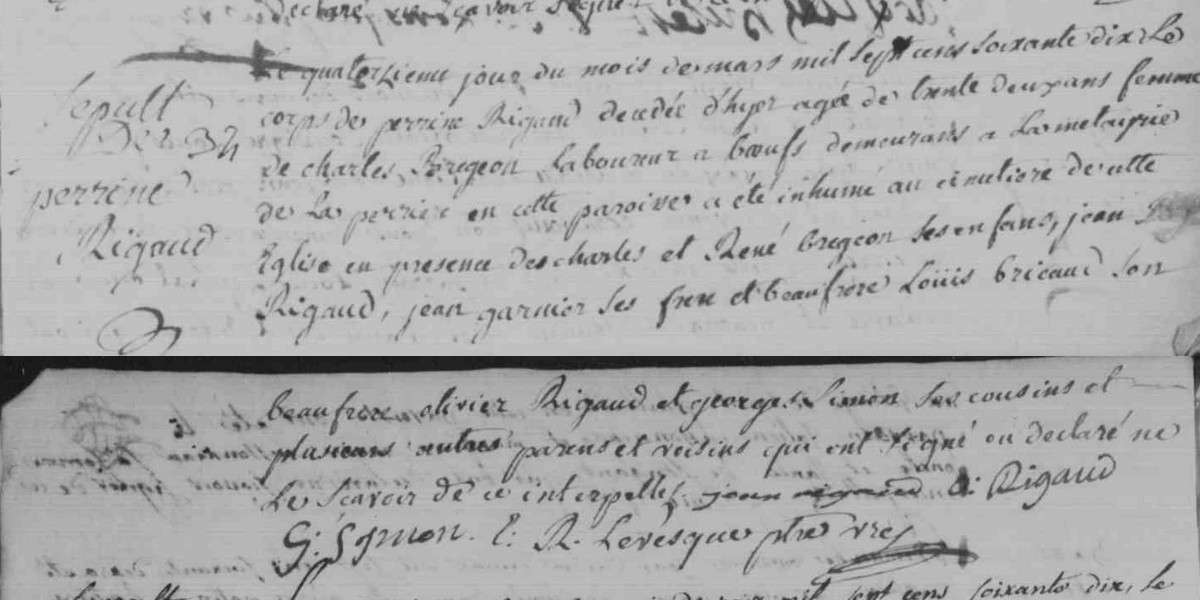 declaré ne sçavoir signer
Le quatorzieme jour du mois de mars mil sept cens soixante dix Le
Sepult
corps de perrine Rigaud decedée d'hyer agée de trente deux ans femme
De
de charles Bregeon Laboureur a bœufs demeurans a La metairie
perrine
de La perriere en cette paroisse a eté inhumé au cimetiere de cette
Rigaud
Eglise en presence de charles et René bregeon ses enfans, jean
Rigaud, jean garnier ses frere et beaufrere Louis briaud son
beaufrere olivier Rigaud et georges Simon ses cousins et
plusieurs autres parens et voisins qui ont signé ou declaré ne
Le scavoir de ce interpellés jean rigaud O: Rigaud
G: Symon. E: R. Levesque ptre vre
mil sept cens soixante dix, Le